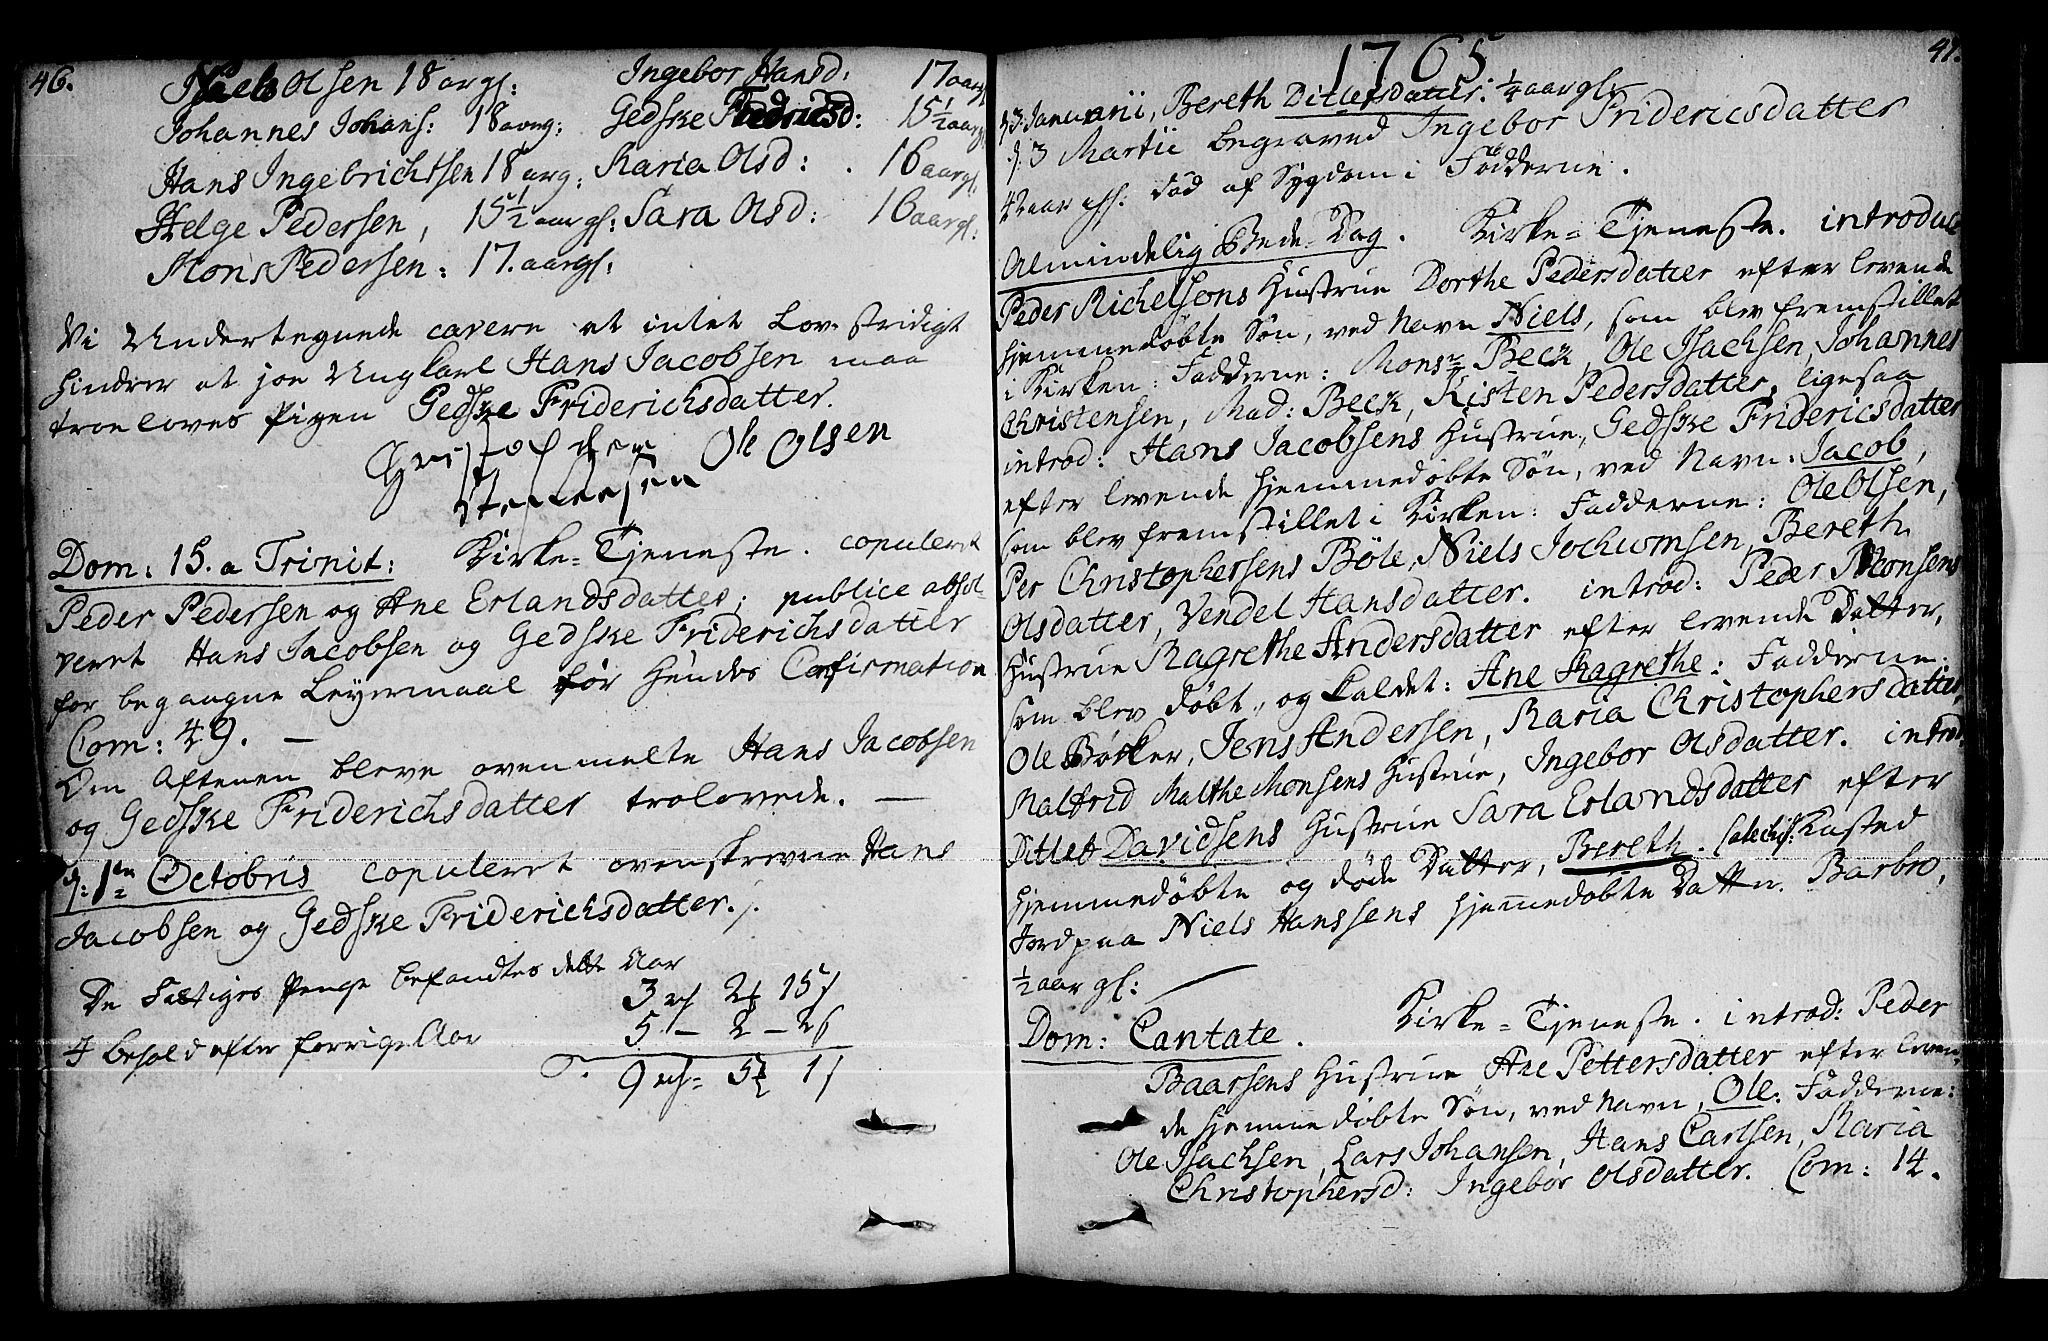 46.
Niels Olsen 18 arg:
Johannes Johans: 18 arg:
Hans Ingebrichtsen 18 arg:
Helge Pedersen, 15½ aar gl:
Mons Pedersen: 17. aar gl:
Ingebor Hansd: 17 aar gl
Gedske Fridricsd: 15½ aar gl
Maria Olsd: 16 aar gl:
Sara Olsd: 16 aar gl:
Vi Undertegnede cavere at intet Lov-stridigt
hindrer at jo Ungkarl Hans Jacobsen maa
troeloves Pigen Gedske Friderichsdatter.
Christopher Ole Olsen
Dom: 15. a Trinit: Kirke-Tjeneste. copuleret
Peder Pedersen og Ane Erlandsdatter; publice absol-
veret Hans Jacobsen og Gedske Friderichsdatter
for begaagne Leyermaal før Hendes Confirmation
Com: 49. —
Om Aftenen bleve ovenmelte Hans Jacobsen
og Gedske Friderichsdatter trolovede. —
d: 1ten Octobris copuleret ovenskrevne Hans
Jacobsen og Gedske Friderichsdatter.
De Fattiges Penge befandtes dette Aar 3 2 15
I behold efter forrige Aar 5 — 2 — 26
9 5 1
1765
47.
Januarii, Bereth Ditlefsdatter. ¼ aar gl:
d. 3 Martii begraved Ingebor Fridericsdatter
42 aar gl: død af Sygdom i Fødderne.
Almindelig Bede-Dag. Kirke-Tjeneste. introduc
Peder Michelsens Hustrue Dorthe Pedersdatter efter levende
hjemmedøbte Søn, ved Navn Niels, som blev fremstillet
i Kirken: Fadderne: Monsr Beck, Ole Isachsen, Johannes
Christensen, Mad: Beck, Kisten Pedersdatter, ligesaa
introd: Hans Jacobsens Hustrue, Gedske Fridericsdatter
efter levende hjemmedøbte Søn, ved Navn: Jacob,
som blev fremstillet i Kirken: Fadderne: Ole Olsen,
Per Christophersens Böle, Niels Jochumsen, Bereth
Olsdatter, Vendel Hansdatter. introd: Peder Monsens
Hustrue Magrethe Andersdatter efter levende Datter,
som blev døbt, og kaldet: Ane Magrethe: Fadderne:
Ole Bösker, Jens Andersen, Maria Christophersdatter,
Malfrid Malthe Monsens Hustrue, Ingebor Olsdatter. introd:
Ditlef Davidsens Hustrue Sara Erlandsdatter efter
hjemmedøbte og døde Datter, Bereth. Catechis: Kasted
Jord paa Niels Hanssens hjemmedøbte Datter Barbro,
½ aar gl:
Dom: Cantate. Kirke-Tjeneste. introd: Peder
Baarsens Hustrue Ane Pettersdatter efter leven-
de hjemmedøbte Søn, ved Navn, Ole. Fadderne:
Ole Isachsen, Lars Johansen, Hans Carlsen, Maria
Christophersd: Ingebor Olsdatter. Com: 14.